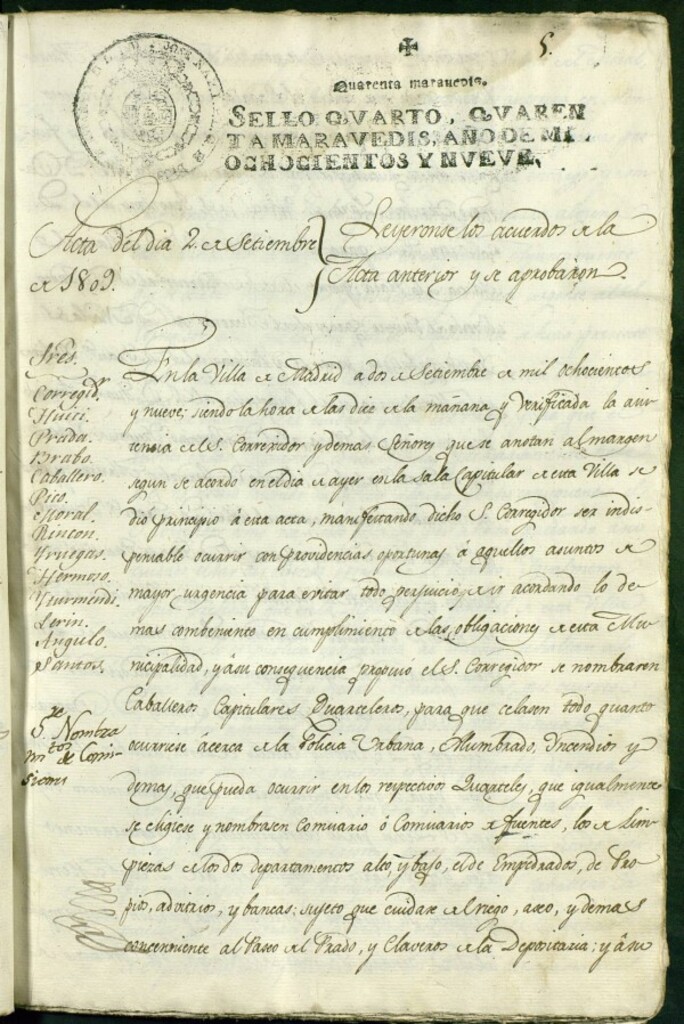 5.
Quarenta maravedis.
SELLO QVARTO, QVAREN
TA MARAVEDIS, AÑO DE MI
OCHOCIENTOS Y NVEVE.
Acta del dia 2 de Setiembre
de 1809.
Leyeronse los acuerdos de la
Acta anterior y se aprobaron.
Sres.
Corregidr
Huici.
Prada.
Brabo.
Caballero.
Pico.
Moral.
Rincon.
Yruegas.
Hermoso.
Yturmendi.
Lerin.
Angulo.
Santos.
En la Villa de Madrid a dos de Setiembre de mil ochocientos
y nueve; siendo la hora de las diez de la mañana y verificada la asis-
tencia del S. Corregidor y demas Señores que se anotan al margen
segun se acordó en el dia de ayer en la sala Capitular de esta Villa se
dió principio á esta acta, manifestando dicho S. Corregidor ser indis-
pensable ocurrir con providencias oportunas á aquellos asuntos de
mayor urgencia para evitar todo perjuicio, e ir acordando lo de-
mas combeniente en cumplimiento de las obligaciones de esta Mu-
nicipalidad, y á su consequencia propuso el S. Corregidor se nombraren
Caballeros Capitulares Quarteleros, para que celasen todo quanto
ocurriese ácerca de la Policia Urbana, Alumbrado, Incendios y
demas, que pueda ocurrir en los respectivos Quarteles, que igualmente
se eligiese y nombrasen Comisario ó Comisarios de fuentes, los de Lim-
piezas de los dos departamentos alto, y bajo, el de Empedrados, de Pro-
pios, advitrios, y bancas; sujeto que cuidare del riego, aseo, y demas
concerniente al Paseo del Prado, y Claveros de la Depositaria; y á su
Sre Nombra
mtos de Comi-
siones